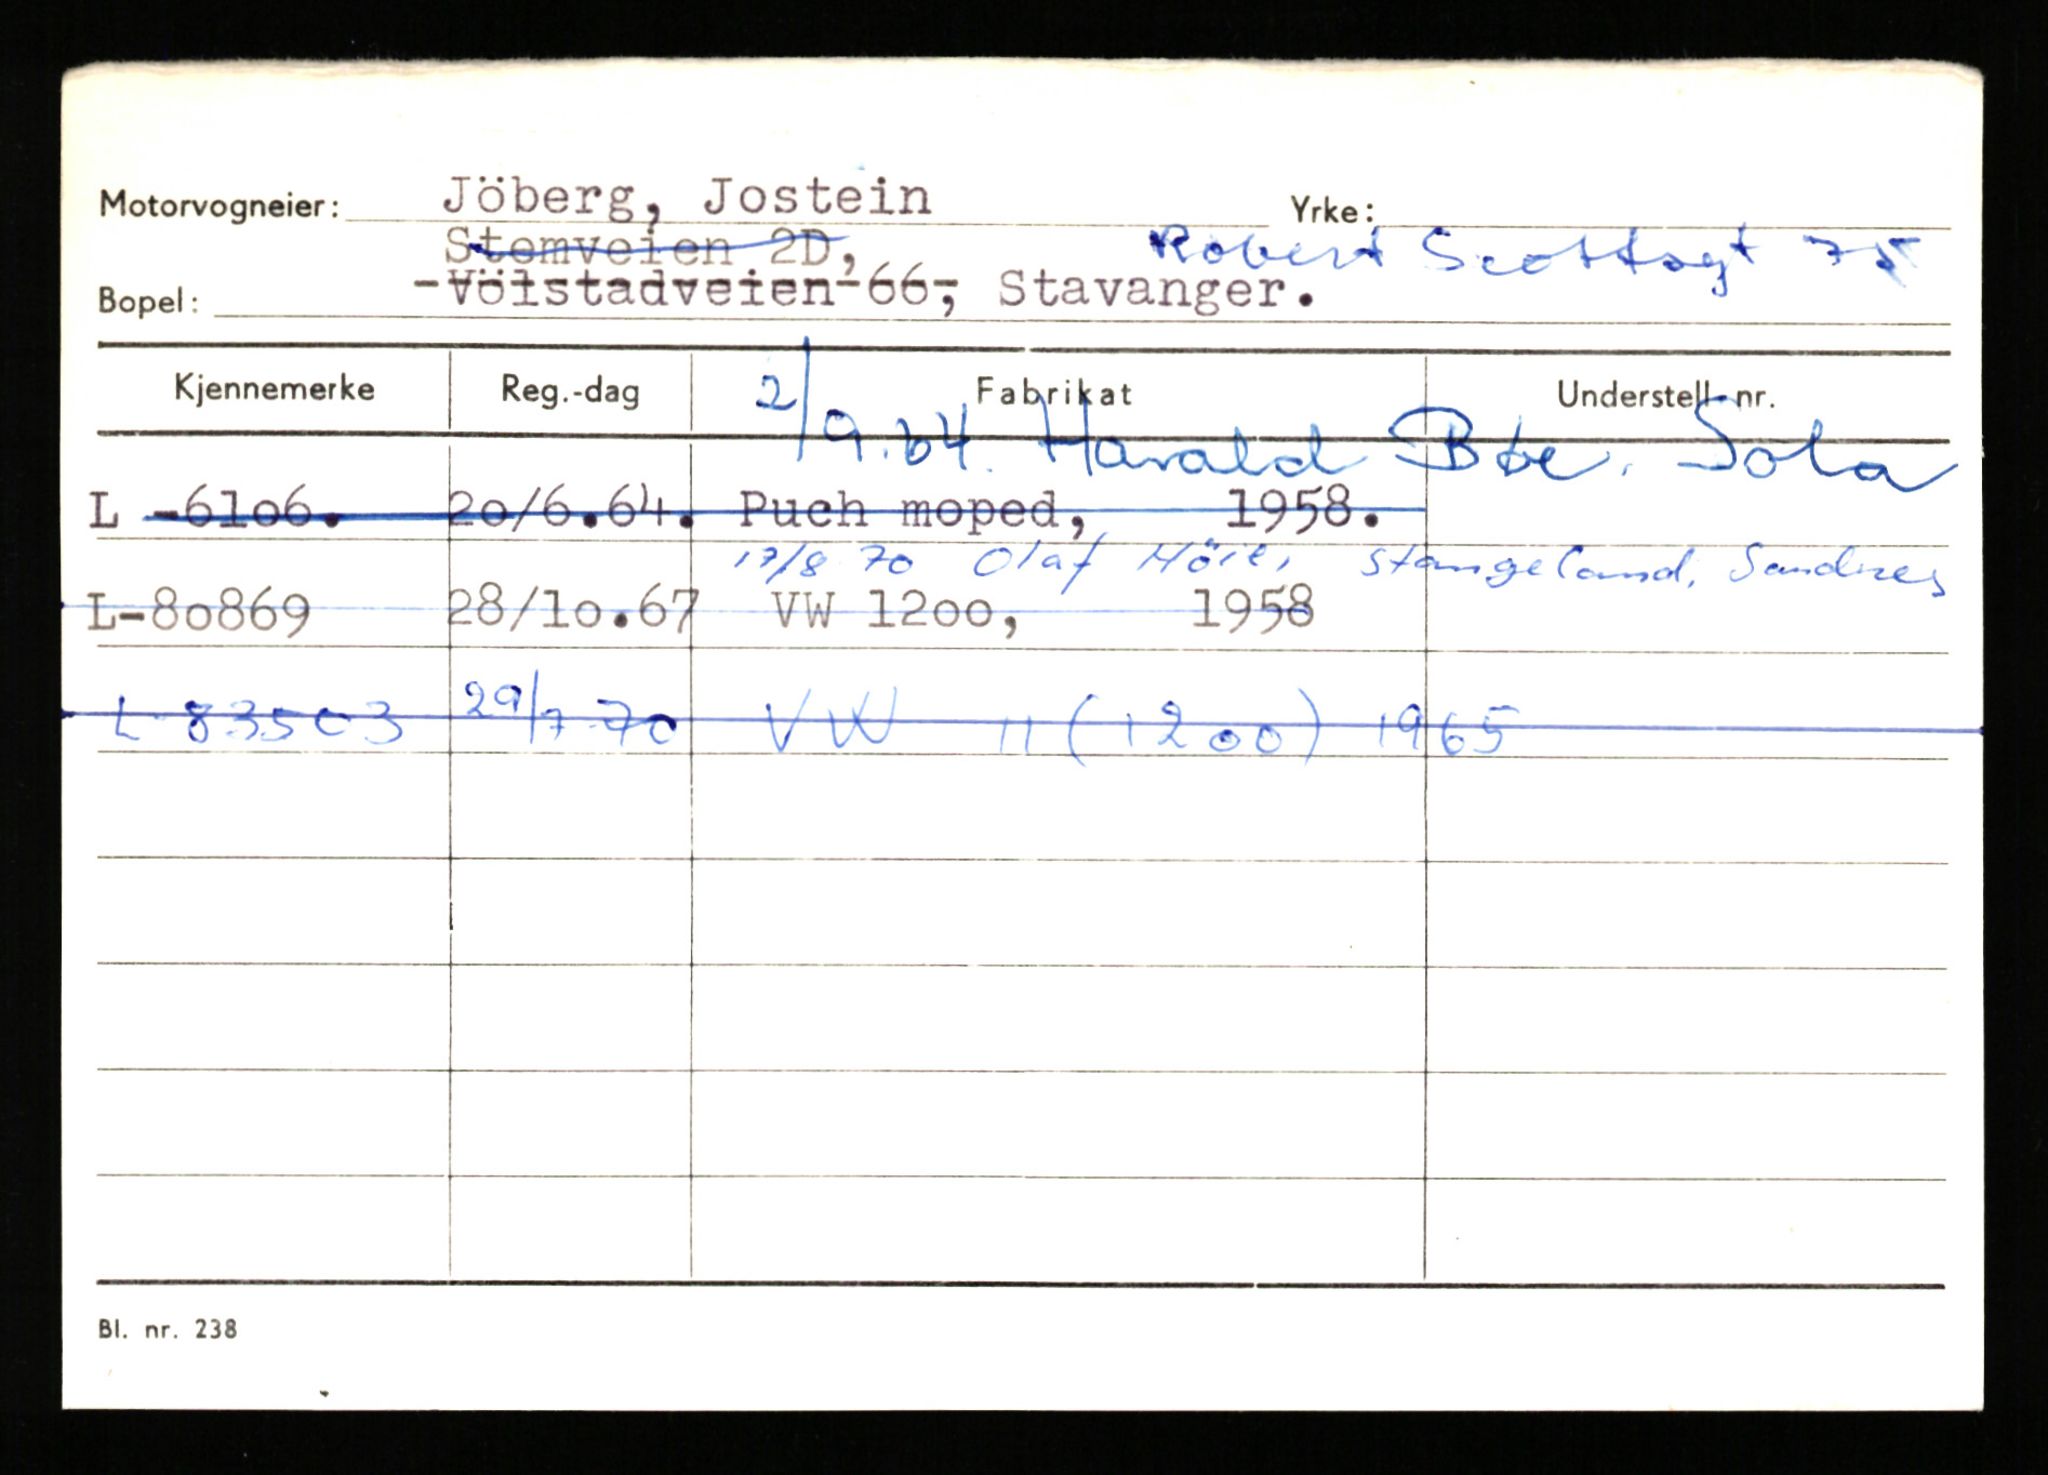 Motorvogneier: Jöberg, Jostein Yrke:
Stemveien 2D, Robert Scottsgt 75
Bopel: -Völstadveien 66, Stavanger.
Kjennemerke Reg.-dag Fabrikat Understell-nr.
2/9.64. Harald Bøe. Sola
L -6106. 20/6.64. Puch moped, 1958.
17/8 70 Olaf Höie, Stangeland, Sandnes
L-80869 28/10.67 VW 1200, 1958
L-83503 29/7-70 VW 11 (1200) 1965
Bl. nr. 238